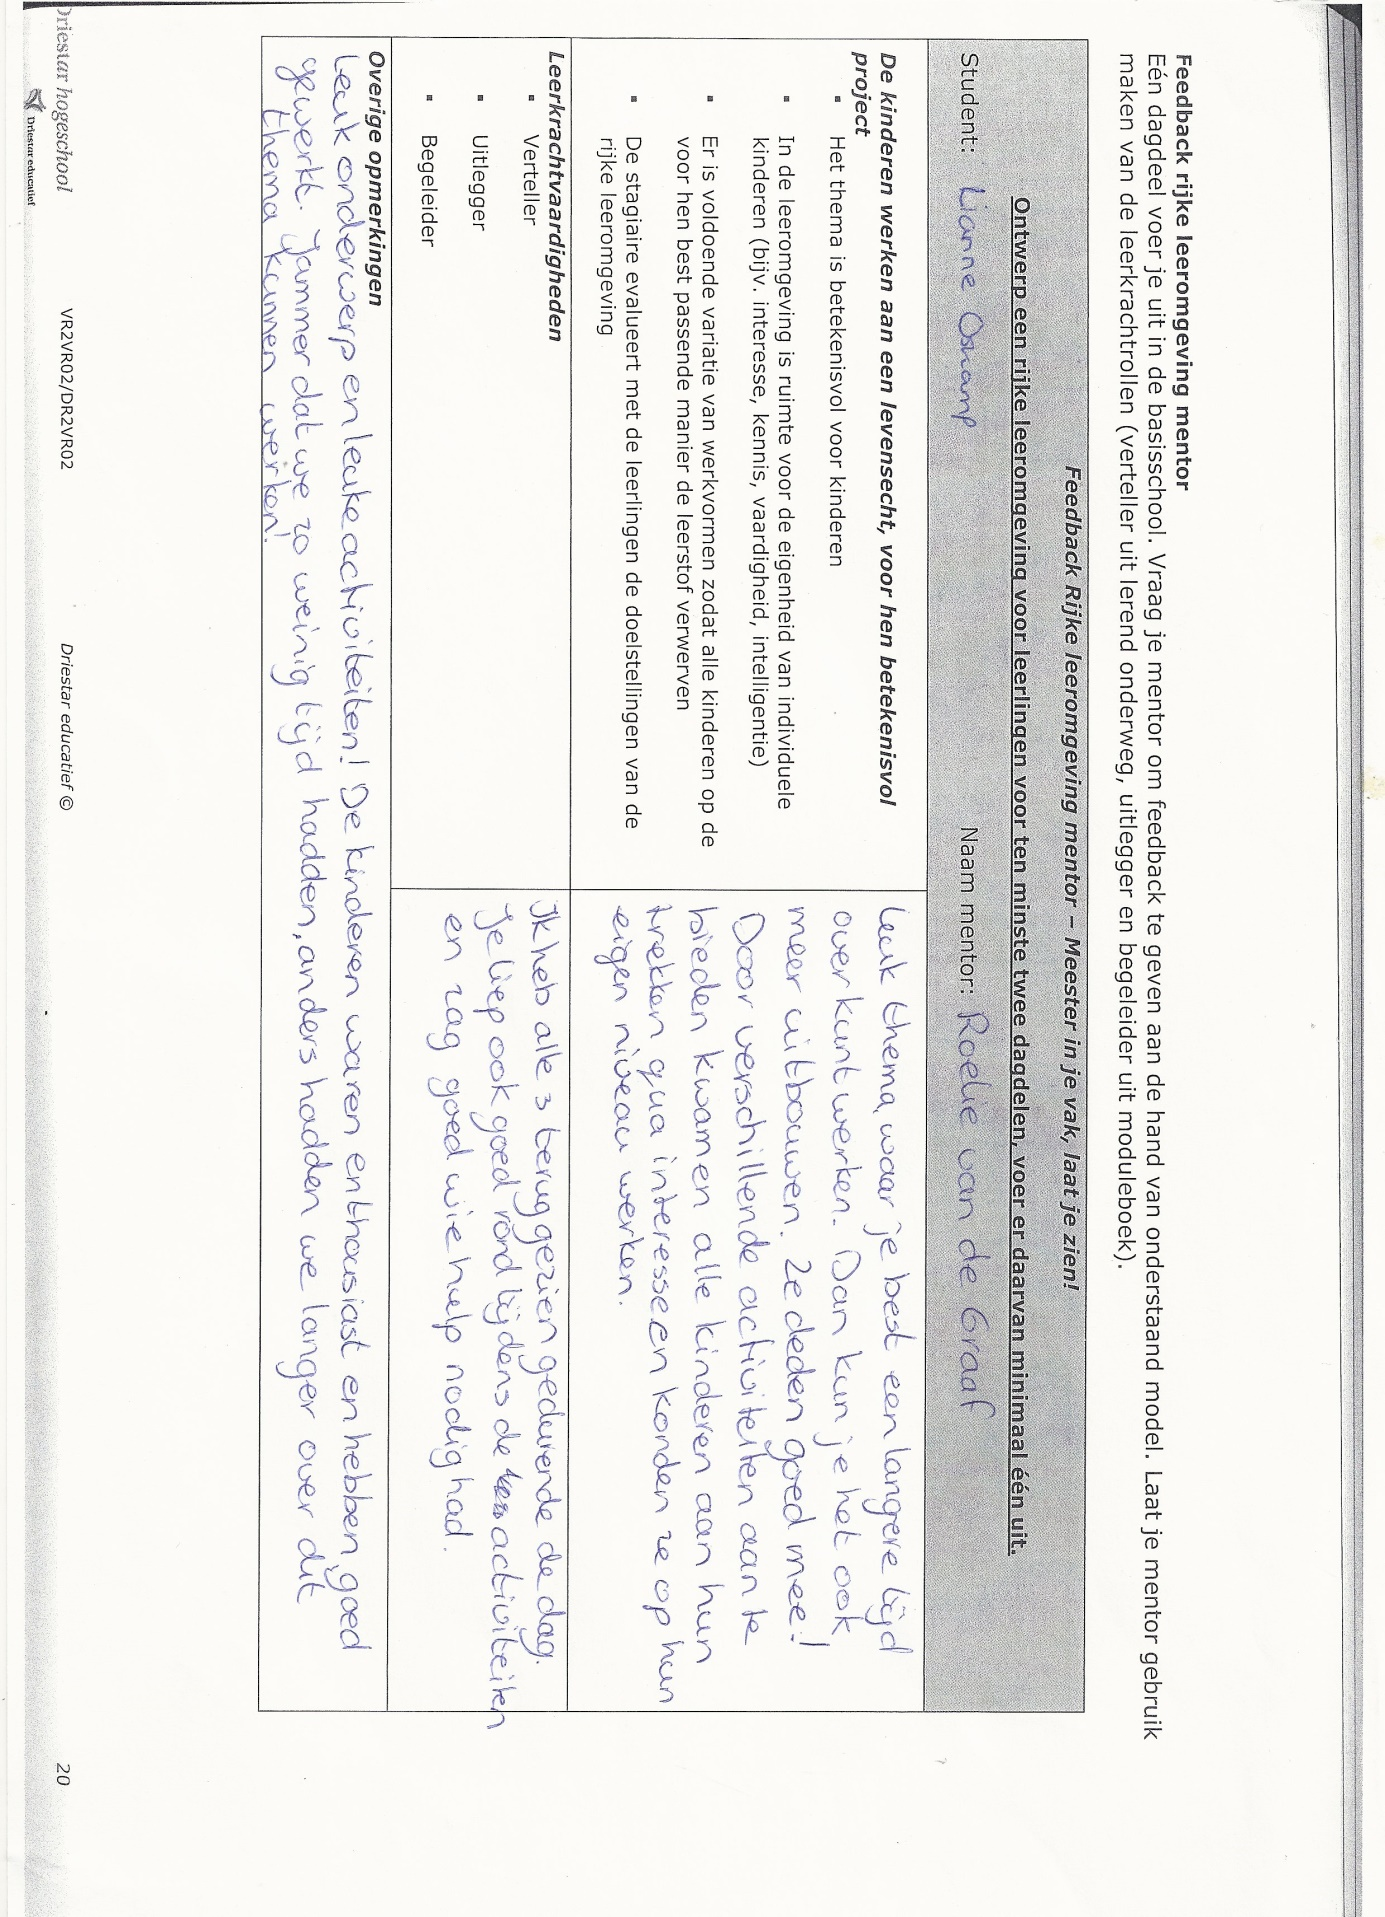 Feedback rijke leeromgeving mentor
Eén dagdeel voer je uit in de basisschool. Vraag je mentor om feedback te geven aan de hand van onderstaand model. Laat je mentor gebruik
maken van de leerkrachtrollen (verteller uit lerend onderweg, uitlegger en begeleider uit moduleboek).
Feedback Rijke leeromgeving mentor – Meester in je vak, laat je zien!
Ontwerp een rijke leeromgeving voor leerlingen voor ten minste twee dagdelen, voer er daarvan minimaal één uit.
Student: Lianne Oskamp Naam mentor: Roelie van de Graaf
De kinderen werken aan een levensecht, voor hen betekenisvol
project
▪ Het thema is betekenisvol voor kinderen
▪ In de leeromgeving is ruimte voor de eigenheid van individuele
kinderen (bijv. interesse, kennis, vaardigheid, intelligentie)
▪ Er is voldoende variatie van werkvormen zodat alle kinderen op de
voor hen best passende manier de leerstof verwerven
▪ De stagiaire evalueert met de leerlingen de doelstellingen van de
rijke leeromgeving
Leuk thema, waar je best een langere tijd
over kunt werken. Dan kun je het ook
meer uitbouwen. Ze deden goed mee!
Door verschillende activiteiten aan te
bieden kwamen alle kinderen aan hun
trekken qua interesse en konden ze op hun
eigen niveau werken.
Leerkrachtvaardigheden
▪ Verteller
▪ Uitlegger
▪ Begeleider
Ik heb alle 3 teruggezien gedurende de dag.
Je liep ook goed rond tijdens de activiteiten
en zag goed wie hulp nodig had.
Overige opmerkingen
Leuk onderwerp en leuke activiteiten! De kinderen waren enthousiast en hebben goed
gewerkt. Jammer dat we zo weinig tijd hadden, anders hadden we langer over dit
thema kunnen werken!
Driestar hogeschool
Driestar educatief
VR2VR02/DR2VR02
Driestar educatief ©
20